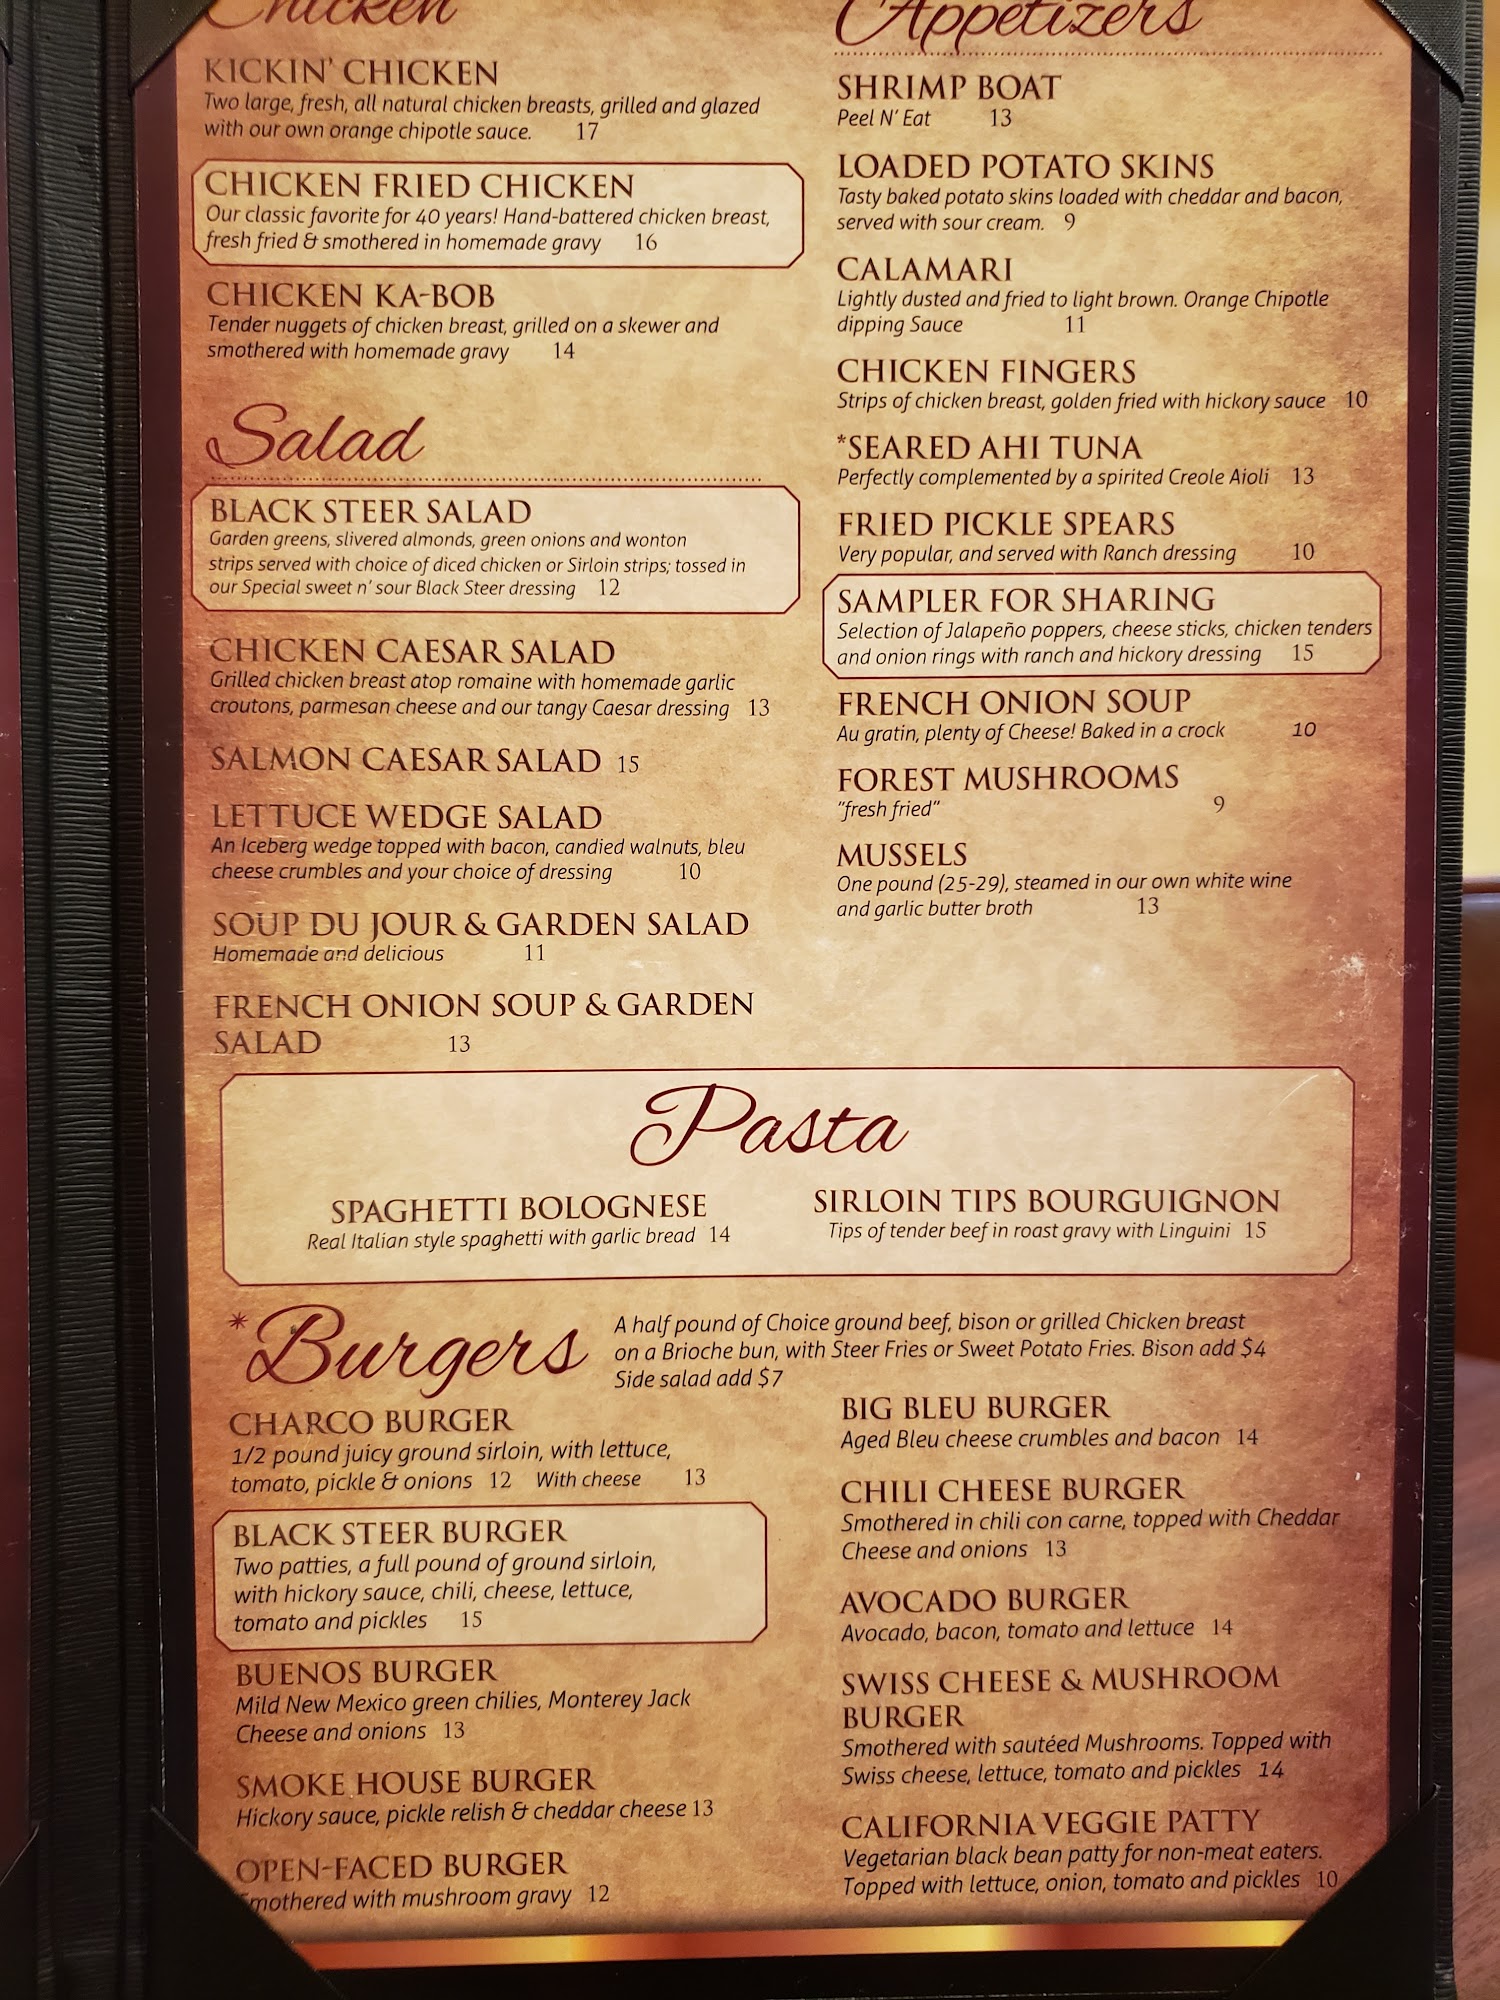 Chicken
KICKIN' CHICKEN
Two large, fresh, all natural chicken breasts, grilled and glazed
with our own orange chipotle sauce. 17
CHICKEN FRIED CHICKEN
Our classic favorite for 40 years! Hand-battered chicken breast,
fresh fried & smothered in homemade gravy 16
CHICKEN KA-BOB
Tender nuggets of chicken breast, grilled on a skewer and
smothered with homemade gravy 14
Salad
BLACK STEER SALAD
Garden greens, slivered almonds, green onions and wonton
strips served with choice of diced chicken or Sirloin strips; tossed in
our Special sweet n' sour Black Steer dressing 12
CHICKEN CAESAR SALAD
Grilled chicken breast atop romaine with homemade garlic
croutons, parmesan cheese and our tangy Caesar dressing 13
SALMON CAESAR SALAD 15
LETTUCE WEDGE SALAD
An Iceberg wedge topped with bacon, candied walnuts, bleu
cheese crumbles and your choice of dressing 10
SOUP DU JOUR & GARDEN SALAD
Homemade and delicious 11
FRENCH ONION SOUP & GARDEN
SALAD 13
Appetizers
SHRIMP BOAT
Peel N' Eat 13
LOADED POTATO SKINS
Tasty baked potato skins loaded with cheddar and bacon,
served with sour cream. 9
CALAMARI
Lightly dusted and fried to light brown. Orange Chipotle
dipping Sauce 11
CHICKEN FINGERS
Strips of chicken breast, golden fried with hickory sauce 10
*SEARED AHI TUNA
Perfectly complemented by a spirited Creole Aioli 13
FRIED PICKLE SPEARS
Very popular, and served with Ranch dressing 10
SAMPLER FOR SHARING
Selection of Jalapeño poppers, cheese sticks, chicken tenders
and onion rings with ranch and hickory dressing 15
FRENCH ONION SOUP
Au gratin, plenty of Cheese! Baked in a crock 10
FOREST MUSHROOMS
"fresh fried" 9
MUSSELS
One pound (25-29), steamed in our own white wine
and garlic butter broth 13
Pasta
SPAGHETTI BOLOGNESE
Real Italian style spaghetti with garlic bread 14
SIRLOIN TIPS BOURGUIGNON
Tips of tender beef in roast gravy with Linguini 15
*Burgers
A half pound of Choice ground beef, bison or grilled Chicken breast
on a Brioche bun, with Steer Fries or Sweet Potato Fries. Bison add $4
Side salad add $7
CHARCO BURGER
1/2 pound juicy ground sirloin, with lettuce,
tomato, pickle & onions 12 With cheese 13
BLACK STEER BURGER
Two patties, a full pound of ground sirloin,
with hickory sauce, chili, cheese, lettuce,
tomato and pickles 15
BUENOS BURGER
Mild New Mexico green chilies, Monterey Jack
Cheese and onions 13
SMOKE HOUSE BURGER
Hickory sauce, pickle relish & cheddar cheese 13
OPEN-FACED BURGER
Smothered with mushroom gravy 12
BIG BLEU BURGER
Aged Bleu cheese crumbles and bacon 14
CHILI CHEESE BURGER
Smothered in chili con carne, topped with Cheddar
Cheese and onions 13
AVOCADO BURGER
Avocado, bacon, tomato and lettuce 14
SWISS CHEESE & MUSHROOM
BURGER
Smothered with sautéed Mushrooms. Topped with
Swiss cheese, lettuce, tomato and pickles 14
CALIFORNIA VEGGIE PATTY
Vegetarian black bean patty for non-meat eaters.
Topped with lettuce, onion, tomato and pickles 10